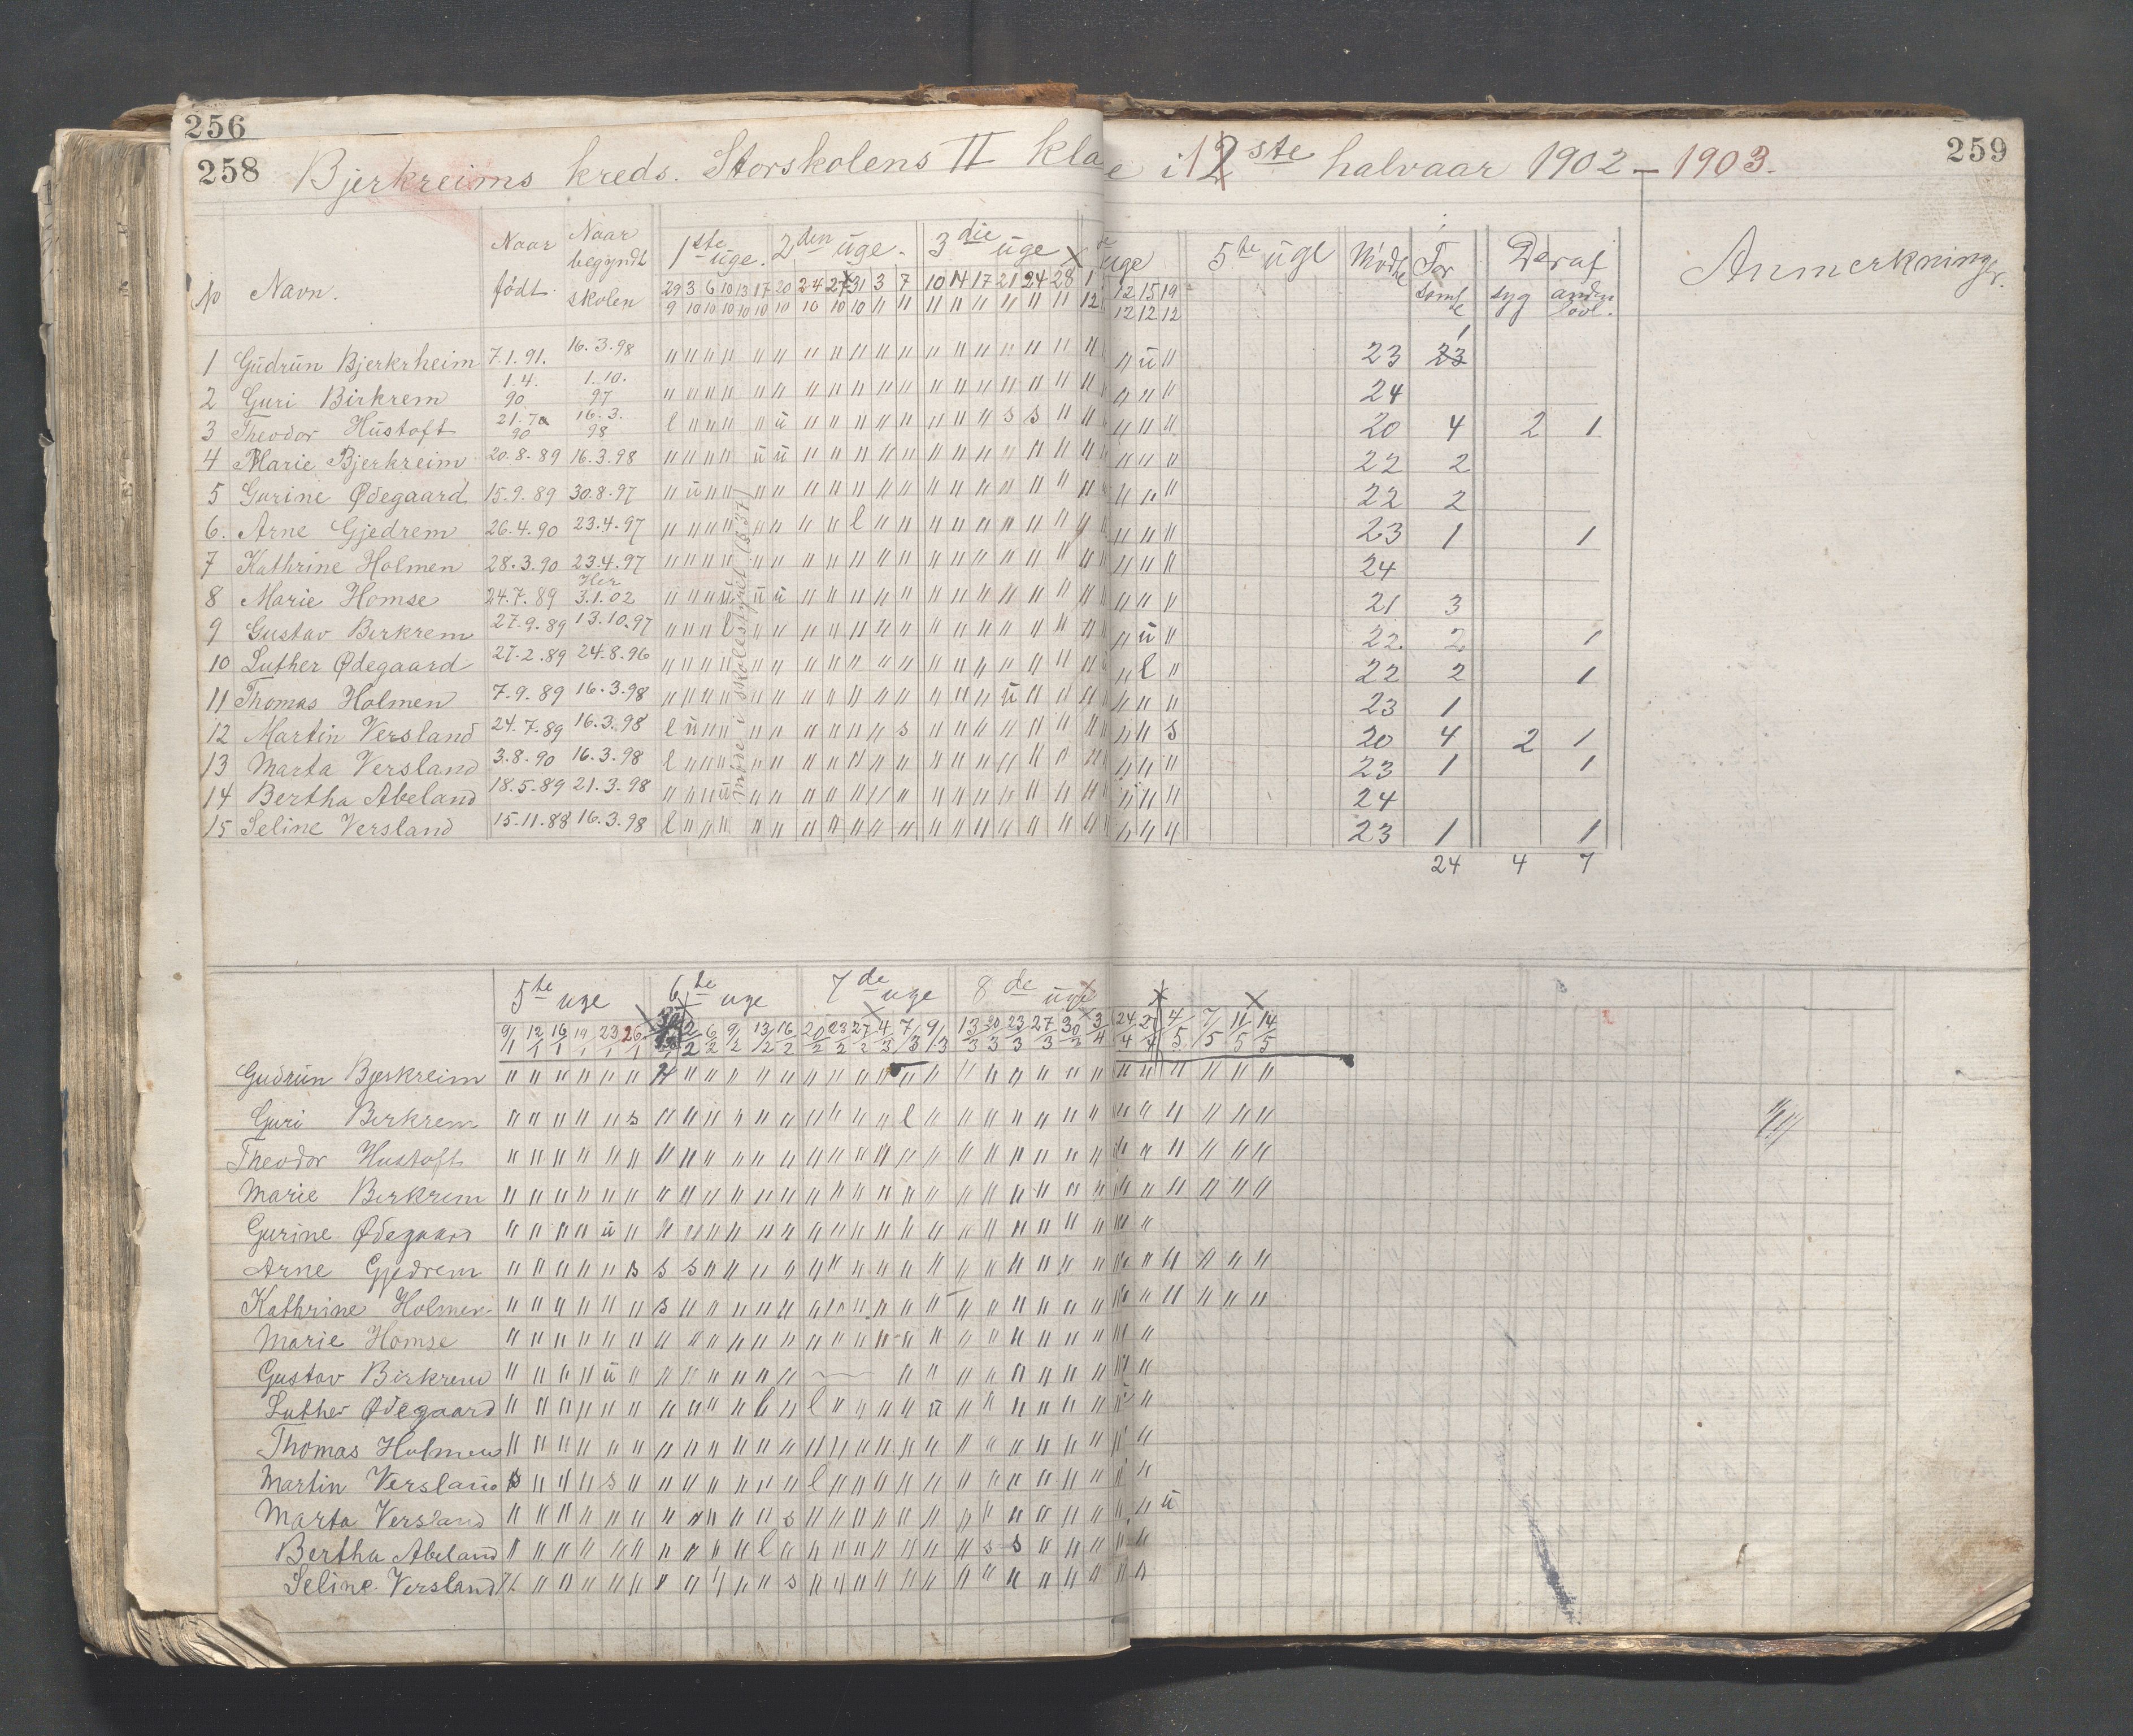 256
258 Bjerkreims kreds. Storskolens II kla e i 12ste halvaar 1902 – 1903. 259
№ Navn. Naar født Naar begyndt skolen 1ste uge. 2den uge. 3die uge uge 5te uge Mødte Forsømte Deraf syg anden lovl. Anmerkninger.
29 3 6 10 13 17 20 24 27 31 3 7 10 14 17 21 24 28 1 12 15 19
9 10 10 10 10 10 10 10 10 10 11 11 11 11 11 11 11 11 12 12 12 12
1 Gudrun Bjerkrheim 7.1.91. 16.3.98 23 1
2 Guri Birkrem 1.4.90 1.10.97 24
3 Theodor Hustoft 21.7.90 16.3.98 20 4 2 1
4 Marie Bjerkreim 20.8.89 16.3.98 22 2
5 Gurine Ødegaard 15.9.89 30.8.97 22 2
6. Arne Gjedrem 26.4.90 23.4.97 23 1 1
7 Kathrine Holmen 28.3.90 23.4.97 24
8 Marie Homse 24.7.89 Her 3.1.02 21 3
9 Gustav Birkrem 27.9.89 13.10.97 22 2 1
10 Luther Ødegaard 27.2.89 24.8.96 22 2 1
11 Thomas Holmen 7.9.89 16.3.98 23 1
12 Martin Versland 24.7.89 16.3.98 20 4 2 1
13 Marta Versland 3.8.90 16.3.98 23 1 1
14 Bertha Abeland 18.5.89 21.3.98 24
15 Seline Versland 15.11.88 16.3.98 23 1 1
24 4 7
møde i skolestyret
5te uge 6te uge 7de uge 8de uge
9/1 12/1 16/1 19/1 23/1 26/1 2/2 6/2 9/2 13/2 16/2 20/2 23/2 27/2 4/3 7/3 9/3 13/3 20/3 23/3 27/3 30/3 3/4 24/4 27/4 4/5 7/5 11/5 14/5
Gudrun Bjerkreim
Guri Birkrem
Theodor Hustoft
Marie Birkrem
Gurine Ødegaard
Arne Gjedrem
Kathrine Holmen
Marie Homse
Gustav Birkrem
Luther Ødegaard
Thomas Holmen
Martin Versland
Marta Versland
Bertha Abeland
Seline Versland